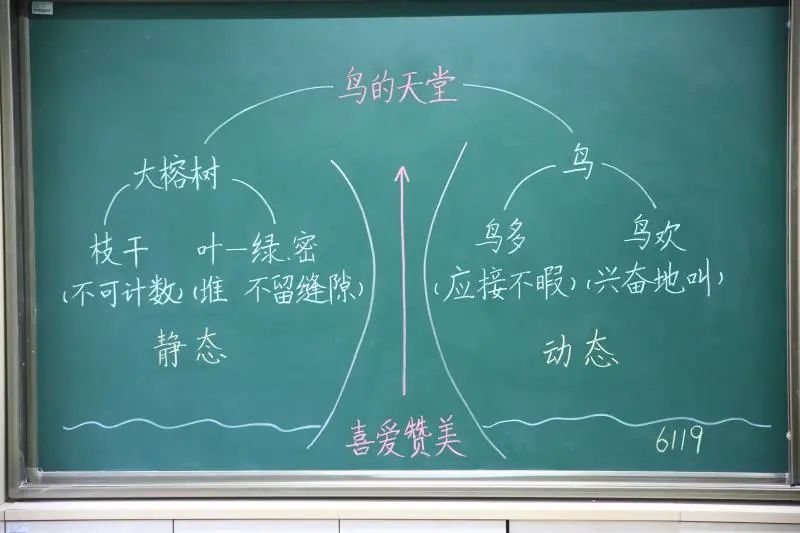 鸟的天堂
大榕树
鸟
枝干 叶—绿.密
鸟多 鸟欢
(不可计数) (堆 不留缝隙)
(应接不暇) (兴奋地叫)
静态
动态
喜爱赞美
6119